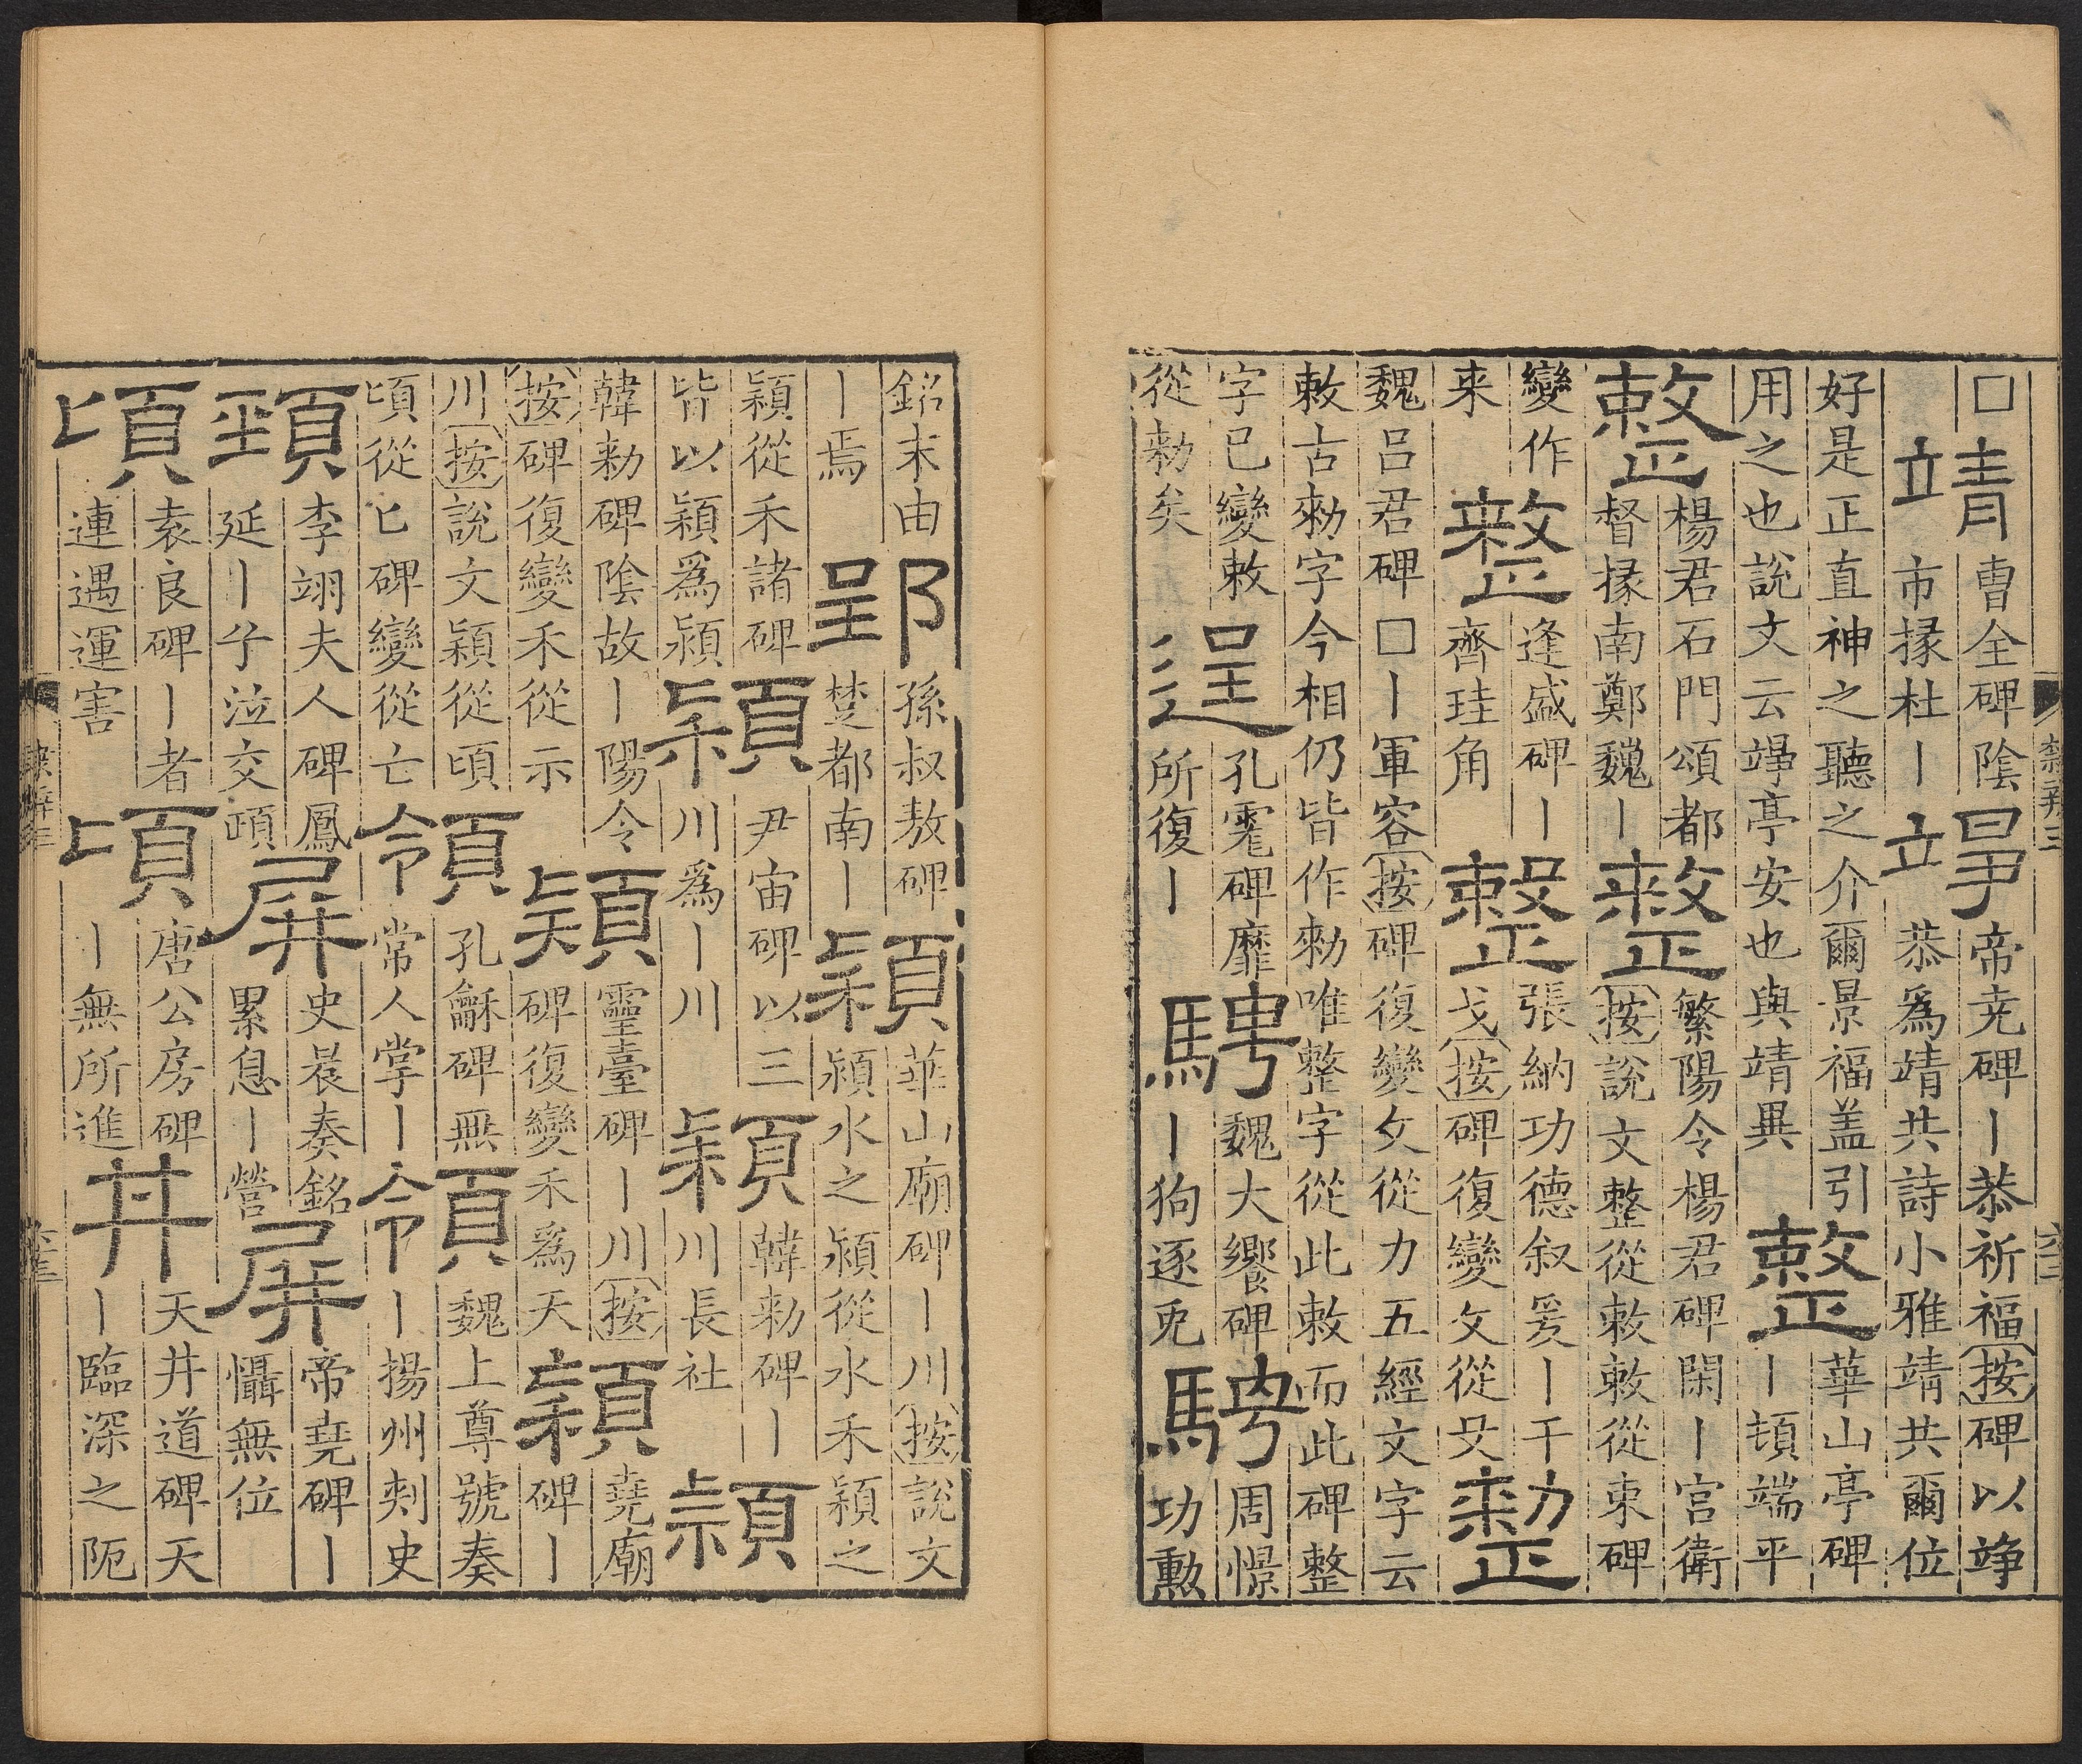 □
靖
曹全碑陰
市掾杜丨
竫
帝尭碑丨恭祈福按碑以竫
恭爲靖共詩小雅靖共爾位
好是正直神之聽之介爾景福盖引
用之也說文云竫亭安也與靖異
整
華山亭碑
丨頓端平
整
楊君石門頌都
督掾南鄭魏丨
整
繁陽令楊君碑閑丨宫衛
按說文整從敕敕從束碑
變作
来
整
逢盛碑丨
齊珪角
整
張納功德叙爰丨干
戈按碑復變攵從殳
整
魏吕君碑□丨軍容按碑復變攵從力五經文字云
敕古勑字今相仍皆作勑唯整字從此敕而此碑整
字已變敕
從勑矣
逞
孔霍碑靡
所復丨
騁
魏大饗碑
丨狗逐兎
騁
周憬
功勲
隸辨三
六十二
銘末由
丨焉
郢
孫叔敖碑
楚都南丨
穎
華山廟碑丨川按說文
潁水之潁從水禾穎之
穎從禾諸碑
皆以穎爲潁
穎
尹宙碑以三
川爲丨川
穎
韓勑碑丨
川長社
穎
韓勑碑陰故丨陽令
按碑復變禾從示
穎
靈臺碑丨川按
碑復變禾爲天
穎
堯廟
碑丨
川按說文穎從頃
頃從匕碑變從亡
領
孔龢碑無
常人掌丨
領
魏上尊號奏
丨揚州刾史
頸
李翊夫人碑鳳
延丨兮泣交頤
屏
史晨奏銘
累息丨營
屏
帝堯碑丨
懾無位
頃
袁良碑丨者
連遇運害
頃
唐公房碑
丨無所進
丼
天井道碑天
丨臨深之阨
隸辨三
六十三